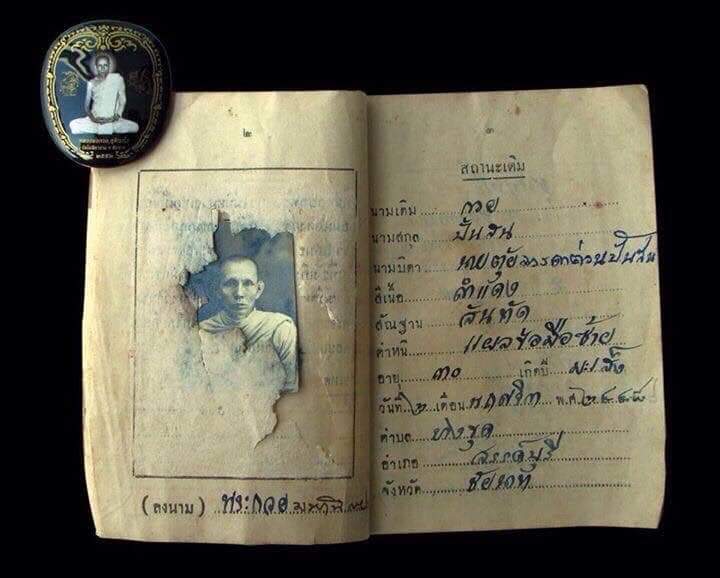 ๒
(ลงนาม) พระกวย
๓
สถานะเดิม
นามเดิม กวย
นามสกุล ปั้นสน
นามบิดา นายตุ้ย มารดาต่วน ปั้นสน
สีเนื้อ ดำแดง
สัณฐาน สันทัด
ตำหนิ แผลข้อมือซ้าย
อายุ ๓๐ เกิดปี มะเส็ง
วันที่ ๒ เดือน พฤศจิกา พ.ศ. ๒๔๔๘
ตำบล บางขุด
อำเภอ สรรค์บุรี
จังหวัด ชัยนาท